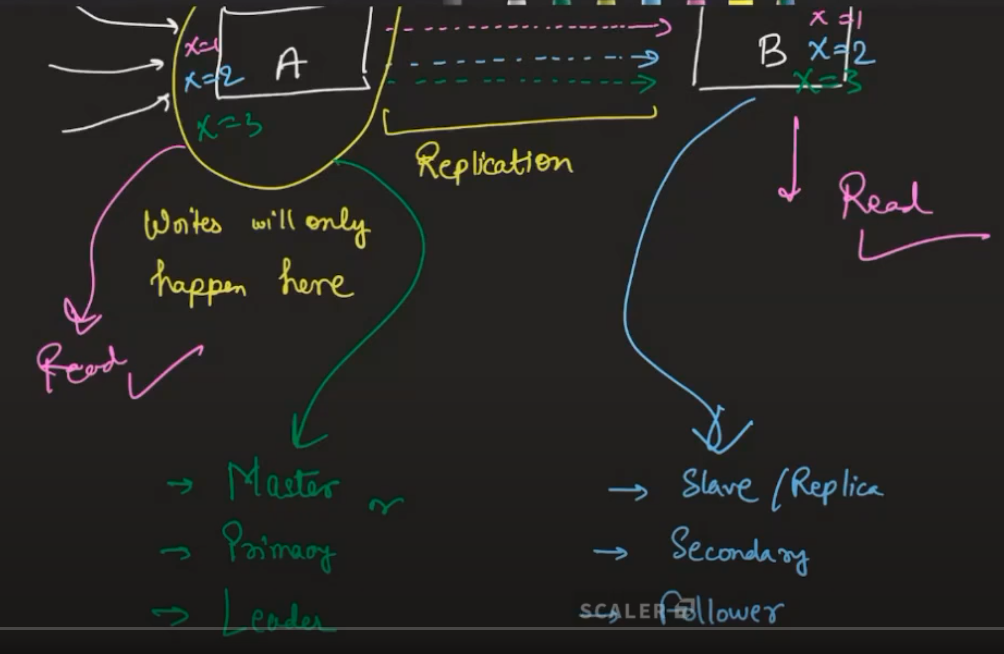 x=1
x=2
A
x=3
x=1
B x=2
x=3
Replication
Read
Writes will only
happen here
Read
→ Master or
→ Primary
→ Leader
→ Slave / Replica
→ Secondary
→ Follower
SCALER